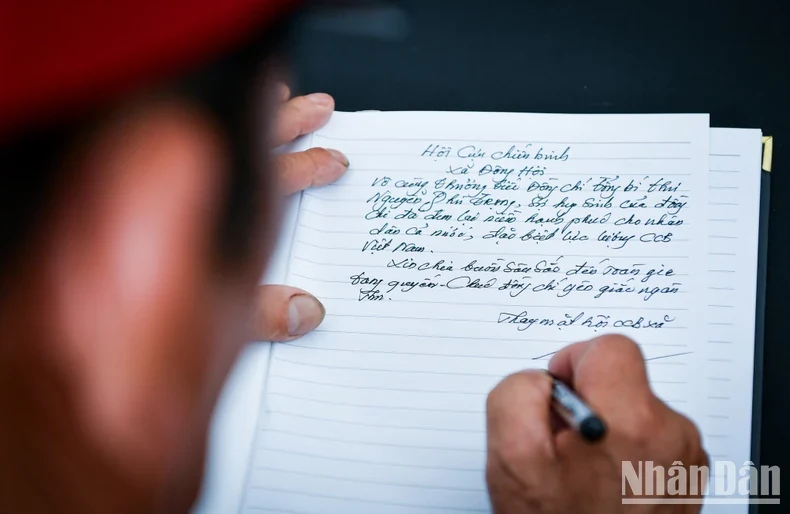 Hội Cựu chiến binh
Xã Đông Hội
Vô cùng thương tiếc Đồng chí tổng bí thư
Nguyễn Phú Trọng, sự hy sinh của đồng
chí đã đem lại niềm hạnh phúc cho nhân
dân cả nước, đặc biệt lực lượng CCB
Việt Nam.
Xin chia buồn sâu sắc đến toàn gia
tang quyến - Chúc đồng chí yên giấc ngàn
Thu.
Thay mặt hội CCB xã
NhânDân